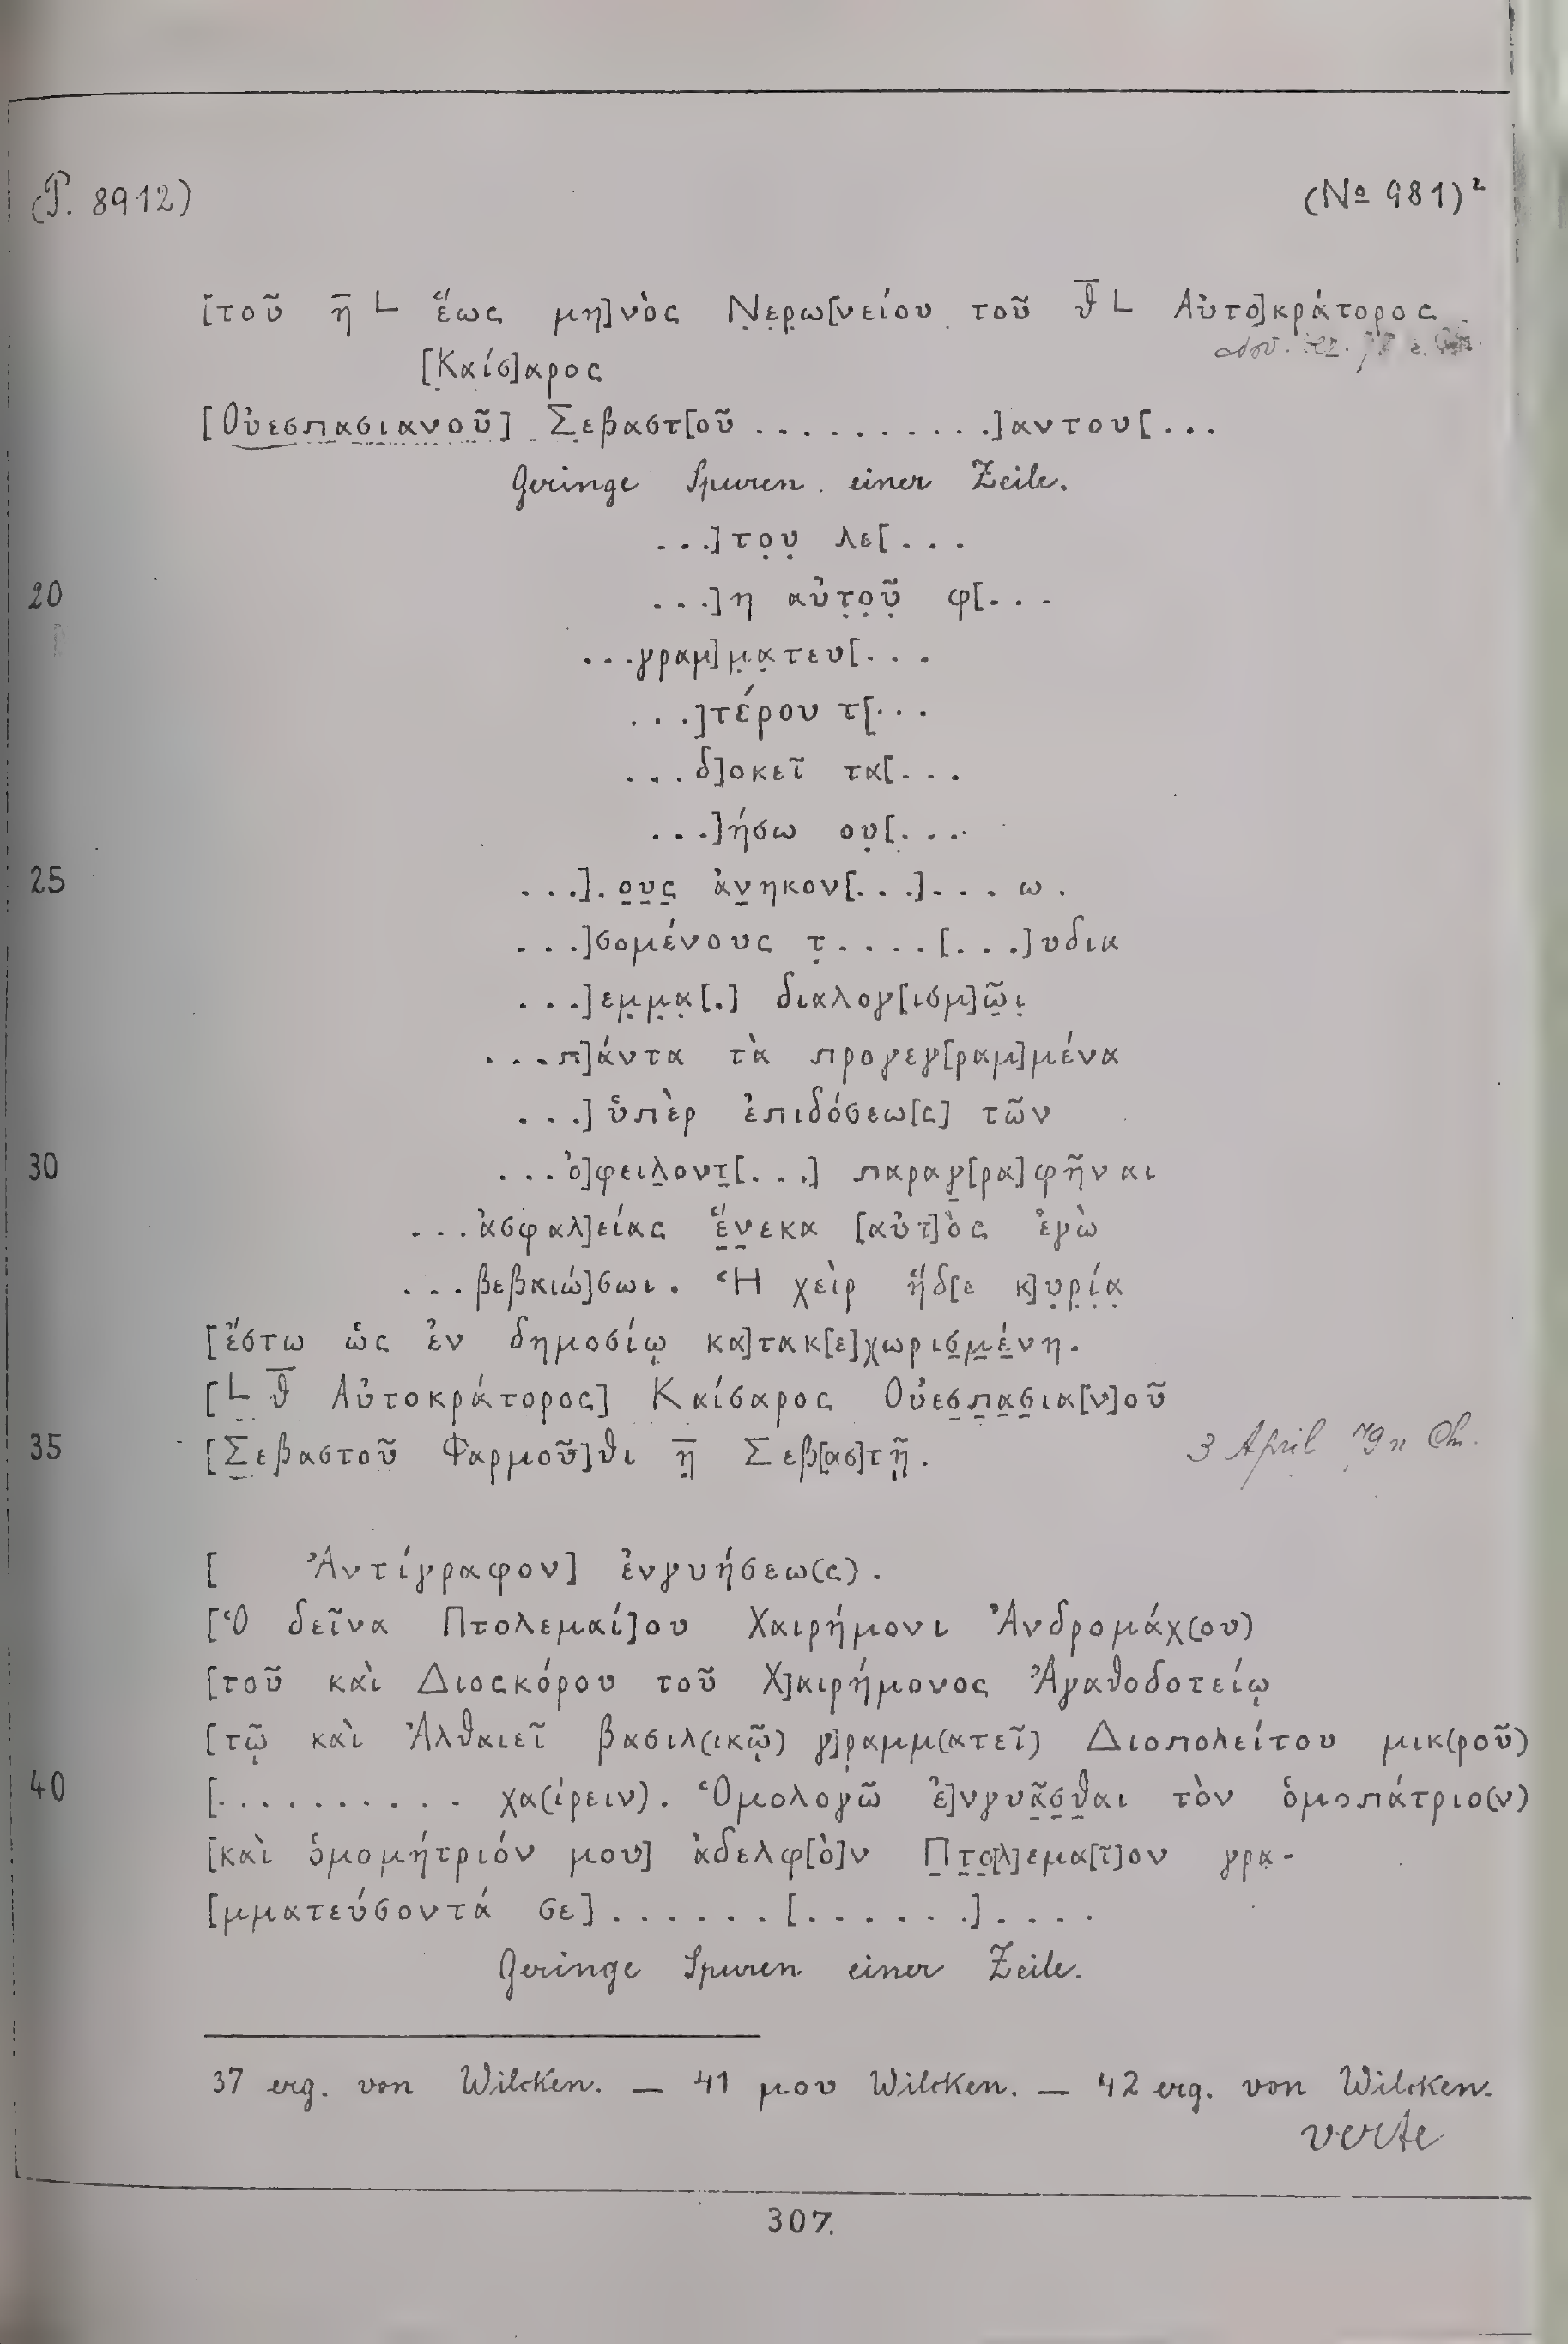 (P. 8912)
(№ 981)²
[τοῦ η̅ L ἕως μη]νὸς Ṇẹρ̣ω[νείου τοῦ θ̅ L Αὐτο]κράτορος
[Καίσ]αρος
[Οὐεσπασιανοῦ] Σεβαστ[οῦ ..........]αντου[...
Geringe Spuren einer Zeile.
...]τọυ̣ λε[...
20 ...]η αὐτ̣ọῦ̣ φ[...
...γραμ]μ̣α̣τευ[...
...]τέρου τ[...
...δ]οκεῖ τα[...
...]ήσω ου̣[...
25 ...].ο̣υ̣ς̣ ἀν̣ηκον[...]... ω .
...]σομένους τ̣....[...]υδικ
...]εμ̣μ̣α̣[.] διαλογ[ισμ]ῶ̣ι̣
...π]άντα τὰ προγεγ[ραμ]μένα
...] ὑπὲρ ἐπιδόσεω[ς] τῶν
30 ...ὀ]φειλ̣οντ̣[...] παραγ̣[ρα]φῆναι
...ἀσφαλ]είας ἕ̣ν̣εκα [αὐτ]ὸς ἐγὼ
...βεβαιώ]σωι. Ἡ χεὶρ ἥδ[ε κ]υ̣ρ̣ί̣α̣
[ἔστω ὡς ἐν δημοσίῳ κα]τακ[ε]χωρισ̣μ̣έ̣νη.
[L θ̅ Αὐτοκράτορος] Καίσαρος Οὐεσ̣π̣α̣σ̣ια[ν]οῦ
35 [Σεβαστοῦ Φαρμοῦ]θι η̣̅ Σεβ[ασ]τῇ̣.
3 April 79 n Chr.
[ Ἀντίγραφον] ἐνγυήσεω(ς).
[Ὁ δεῖνα Πτολεμαί]ου Χαιρήμονι Ἀνδρομάχ(ου)
[τοῦ καὶ Διοσκόρου τοῦ Χ]αιρήμονος Ἀγαθοδοτείῳ
[τῷ καὶ Ἀλθαιεῖ βασιλ(ικῷ) γ]ρ̣αμμ(ατεῖ) Διοπολείτου μικ(ροῦ)
40 [.......... χα(ίρειν). Ὁμολογῶ ἐ]νγυᾶ̣σ̣θ̣αι τὸν ὁμοπάτριο(ν)
[καὶ ὁμομήτριόν μου] ἀδελφ[ὸ]ν Π̣τ̣ο̣[λ]εμα[ῖ]ον γρα-
[μματεύσοντά σε]......[......]....
Geringe Spuren einer Zeile.
37 erg. von Wilcken. — 41 μου Wilcken. — 42 erg. von Wilcken.
verte
307.